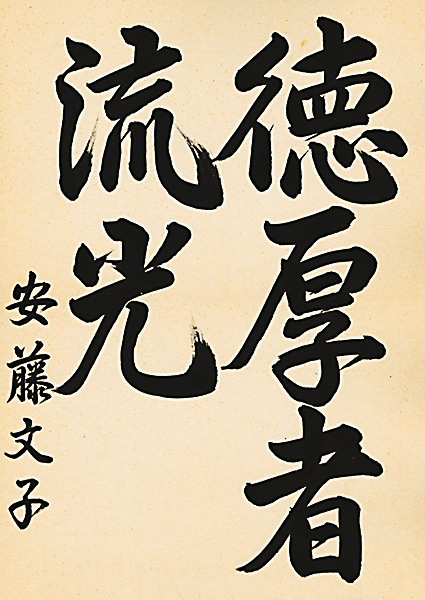 徳厚者
流光
安藤文子